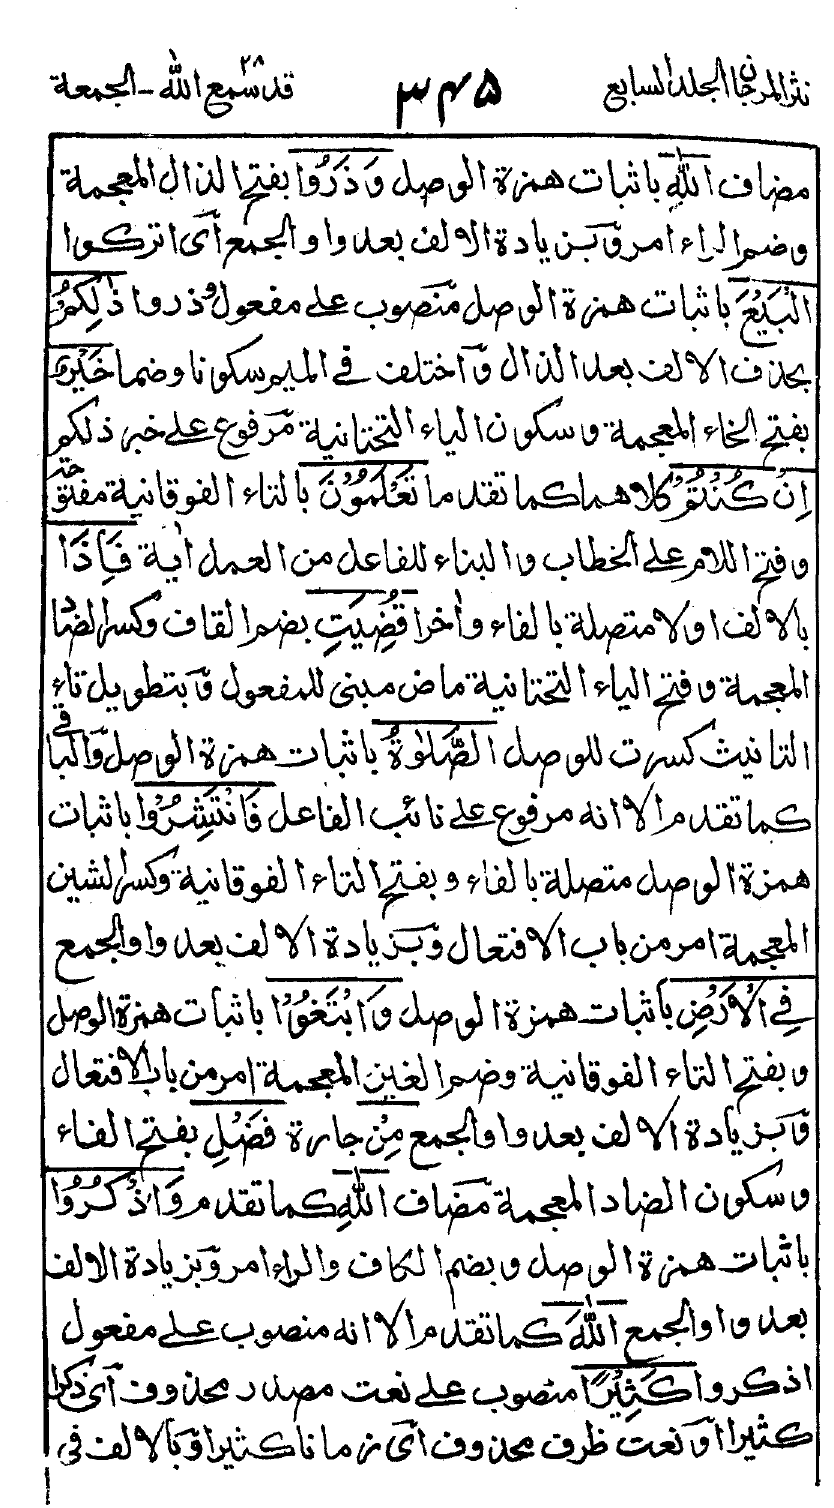 نثر المرجان الجلد السابع ۳۴۵ قد سمع الله ۲۸ - الجمعة
مضاف اللهِ باثبات همزة الوصل وَذَرُوا بفتح الذال المعجمة
وضم الراء امر وَبزيادة الالف بعد واو الجمع اَى اتركوا
الْبَيْعَ باثبات همزة الوصل منصوب على مفعول وذروا ذٰلِكُمْ
بحذف الالف بعد الذال وَاختلف فى الميم سكونا وضما خَيْرٌ
بفتح الخاء المعجمة وسكون الياء التحتانية مرفوع على خبر ذلكم
اِنْ كُنْتُمْ كلاهما كما تقدم تَعْلَمُوْنَ بالتاء الفوقانية مفتوحة
وفتح اللام على الخطاب والبناء للفاعل من العمل اٰية فَاِذَا
بالالف اولا متصلة بالفاء واٰخرا قُضِيَتِ بضم القاف وكسر الضاد
المعجمة وفتح الياء التحتانية ماض مبنى للمفعول وَبتطويل تاء
التانيث كسرت للوصل الصَّلٰوةُ باثبات همزة الوصل وَالباقى
كما تقدم الا انه مرفوع على نائب الفاعل فَانْتَشِرُوْا باثبات
همزة الوصل متصلة بالفاء وبفتح التاء الفوقانية وكسر الشين
المعجمة امر من باب الافتعال وَبزيادة الالف بعد واو الجمع
فِى الْاَرْضِ باثبات همزة الوصل وَابْتَغُوْا باثبات همزة الوصل
وبفتح التاء الفوقانية وضم الغين المعجمة امر من باب الافتعال
وَبزيادة الالف بعد واو الجمع مِنْ جارة فَضْلِ بفتح الفاء
وسكون الضاد المعجمة مضاف اللهِ كما تقدم وَاذْكُرُوْا
باثبات همزة الوصل وبضم الكاف والراء امر وَبزيادة الالف
بعد واو الجمع اللهَ كما تقدم الا انه منصوب على مفعول
اذكروا كَثِيْرًا منصوب على نعت مصدر محذوف اَى ذكرا
كثيرا اَو نعت ظرف محذوف اَى زمانا كثيرا وَبالالف فى